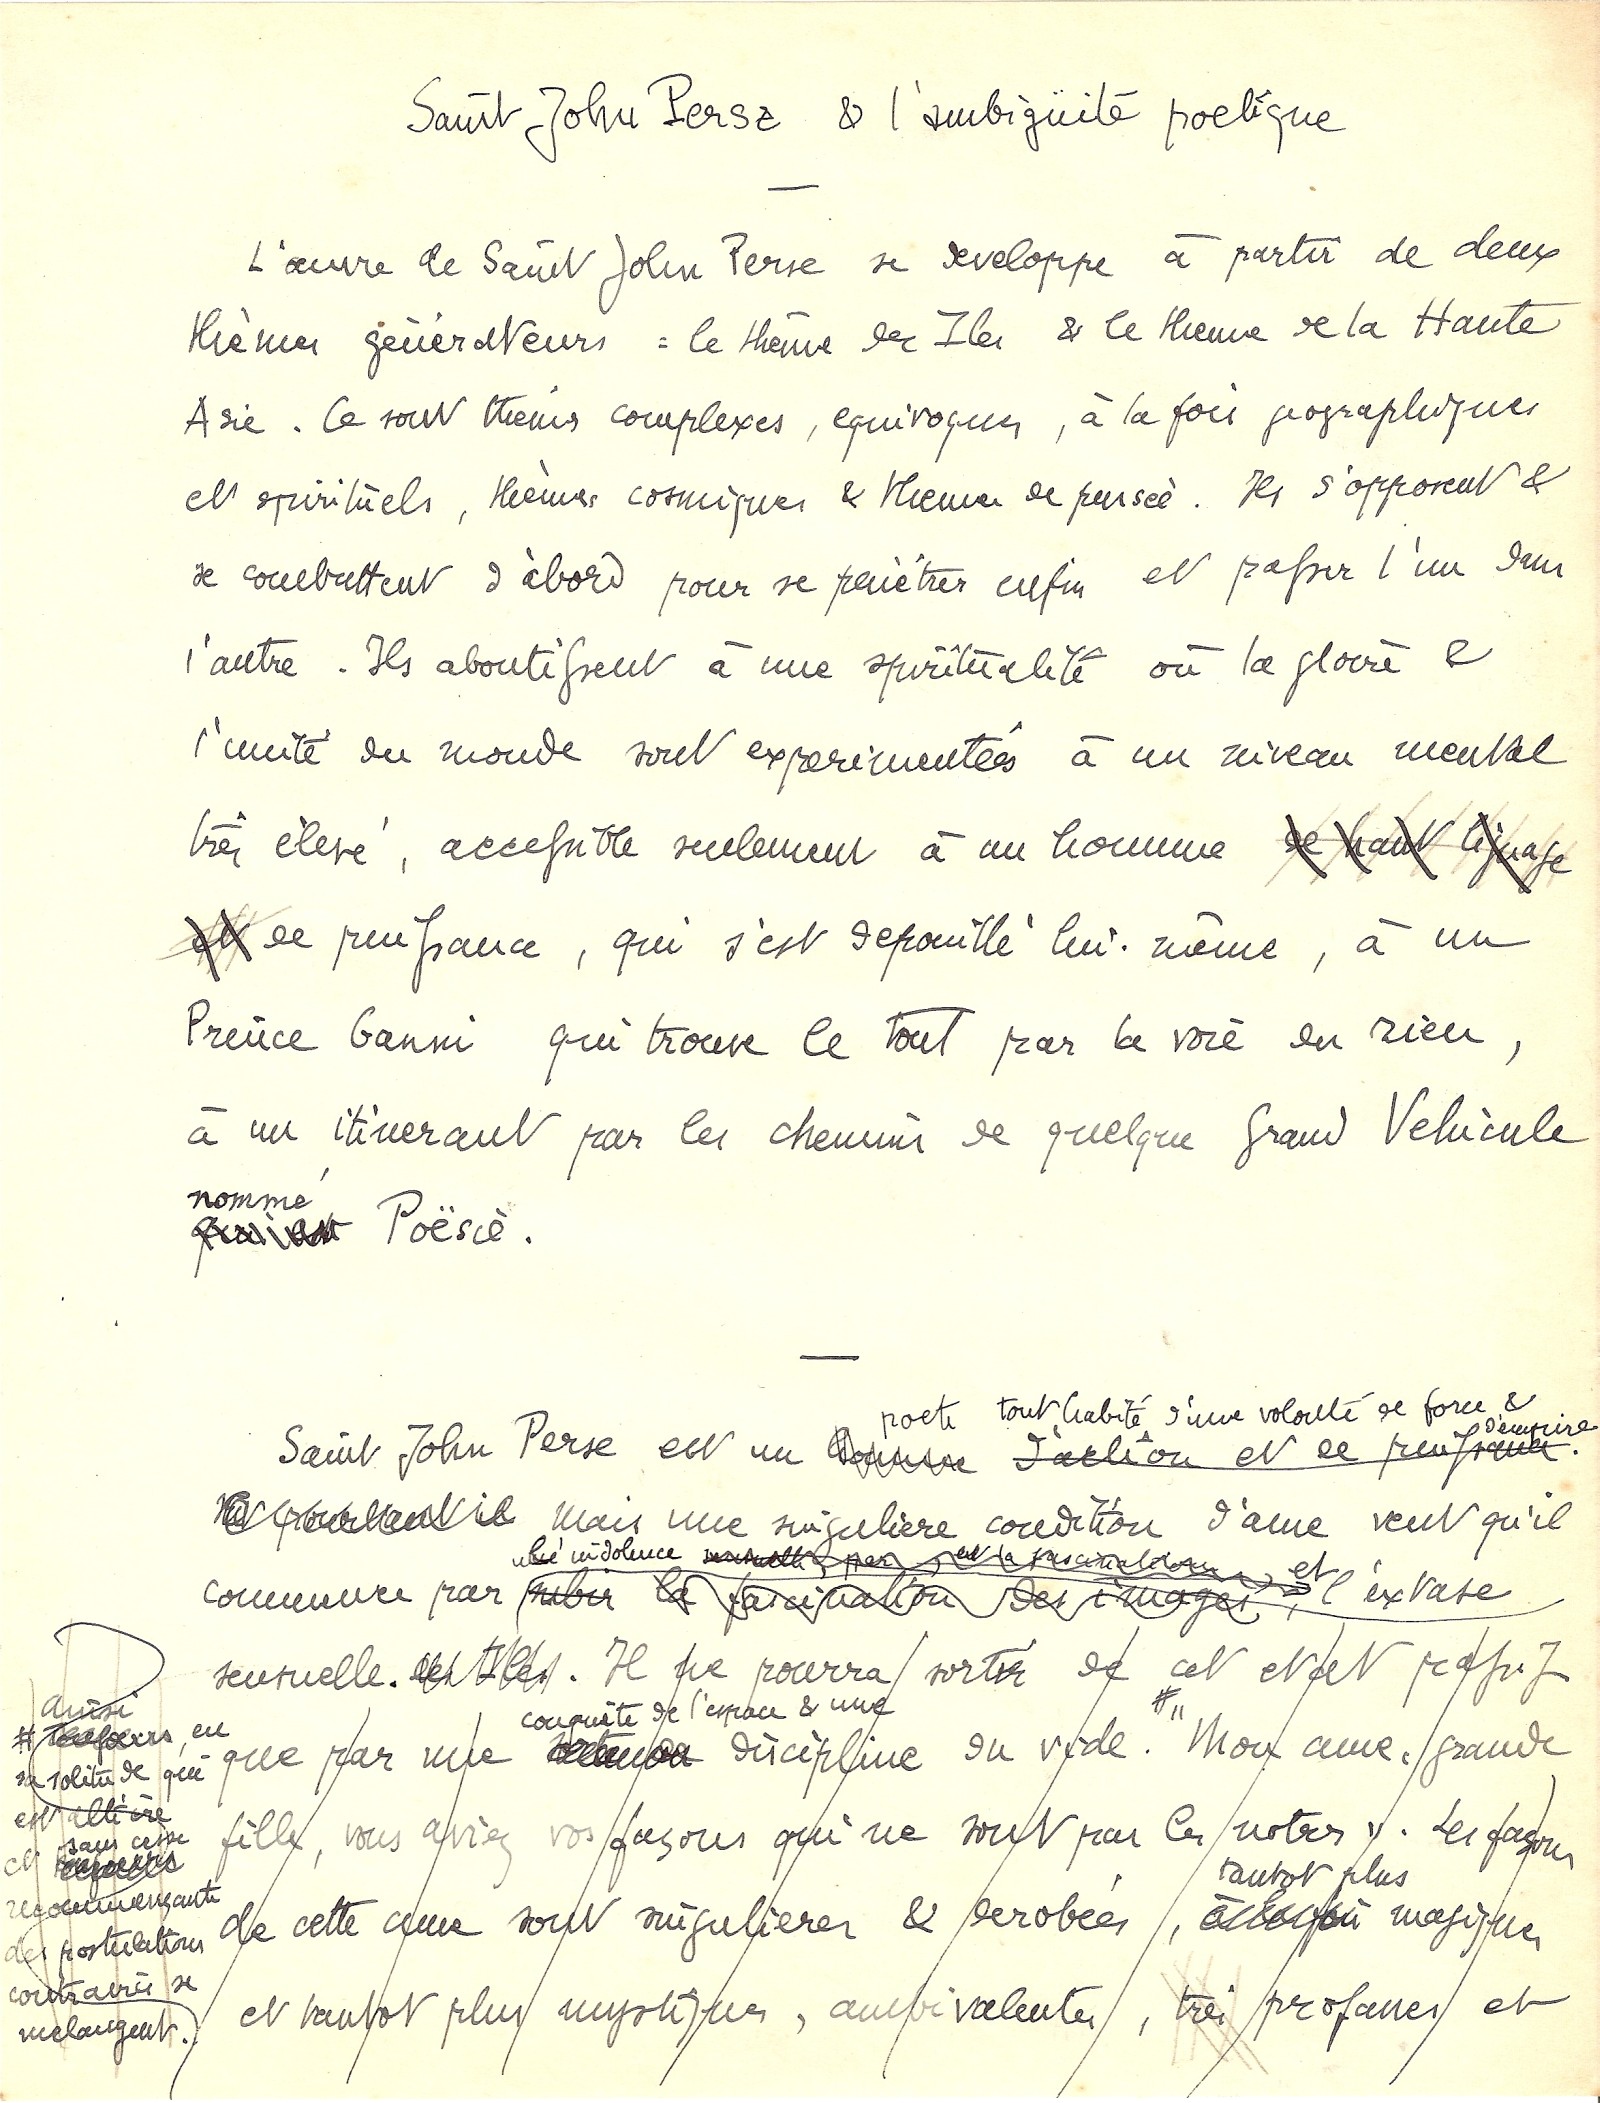 Saint John Perse & l'ambigüité poetique
L'œuvre de Saint John Perse se developpe à partir de deux
thèmes générateurs : le thème des Iles & le theme de la Haute
Asie. Ce sont themes complexes, equivoques, à la fois geographiques
et spirituels, thèmes cosmiques & themes de pensée. Ils s'opposent &
se combattent d'abord pour se pénétrer enfin et passer l'un dans
l'autre. Ils aboutissent à une spiritualité où la gloire &
l'unité du monde sont experimentées à un niveau mental
très élevé, accessible seulement à un homme de haut lignage
et de puissance, qui s'est depouillé lui-même, à un
Prince banni qui trouve le tout par la voie du rien,
à un itinerant par les chemins de quelque Grand Vehicule
nommé
qui est Poësie.
poete tout habité d'une volonté de force &
d'empire
Saint John Perse est un homme d'action et de puissance.
Et pourtant il mais une singuliere condition d'ame veut qu'il
indolence et la fascination et
commence par subir la fascination des images, l'extase
sensuelle. des Iles. Il ne pourra sortir de cet etat passif
conquête de l'espace & une
que par une discipline du vide. # "Mon ame, grande
fille, vous aviez vos façons qui ne sont pas les notres". Les façons
tantot plus
de cette ame sont singulieres & derobées, à la fois magiques
et tantot plus mystiques, ambivalentes, très profanes et
ainsi
# toujours, en
sa solitude qui
est altière
sans cesse
et toujours
recommençante
des postulations
contraires se
melangent.